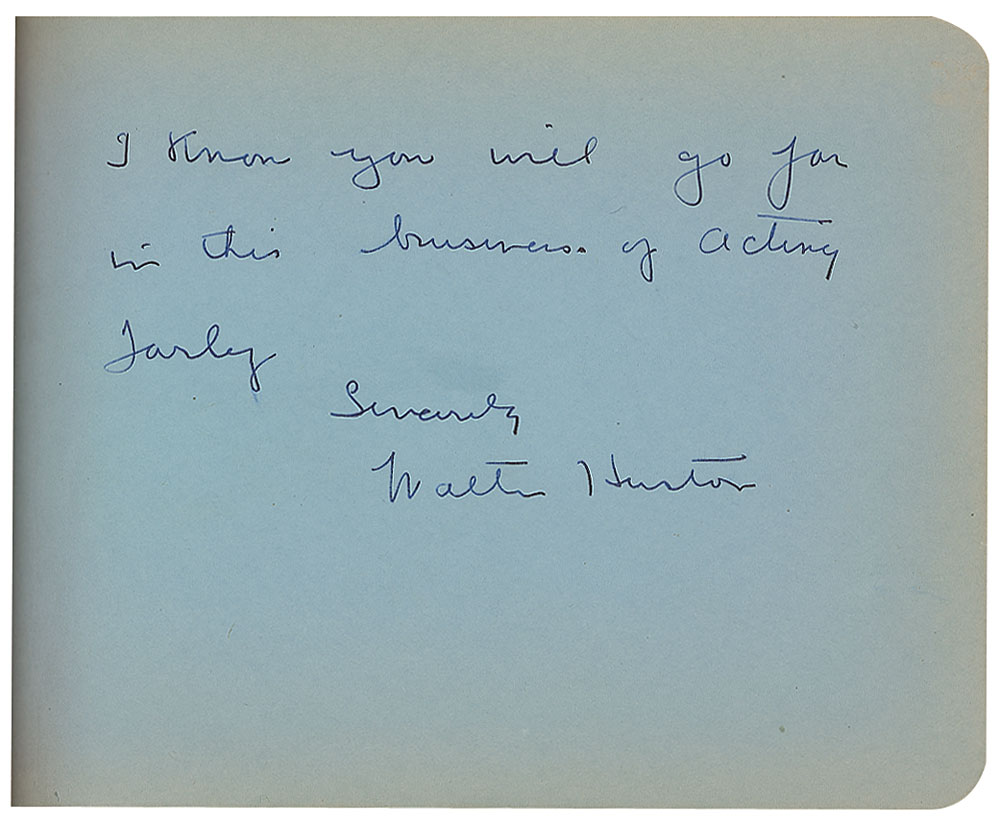 I Know you will go far
in this business of acting
Farley
Sincerely
Walter Huston